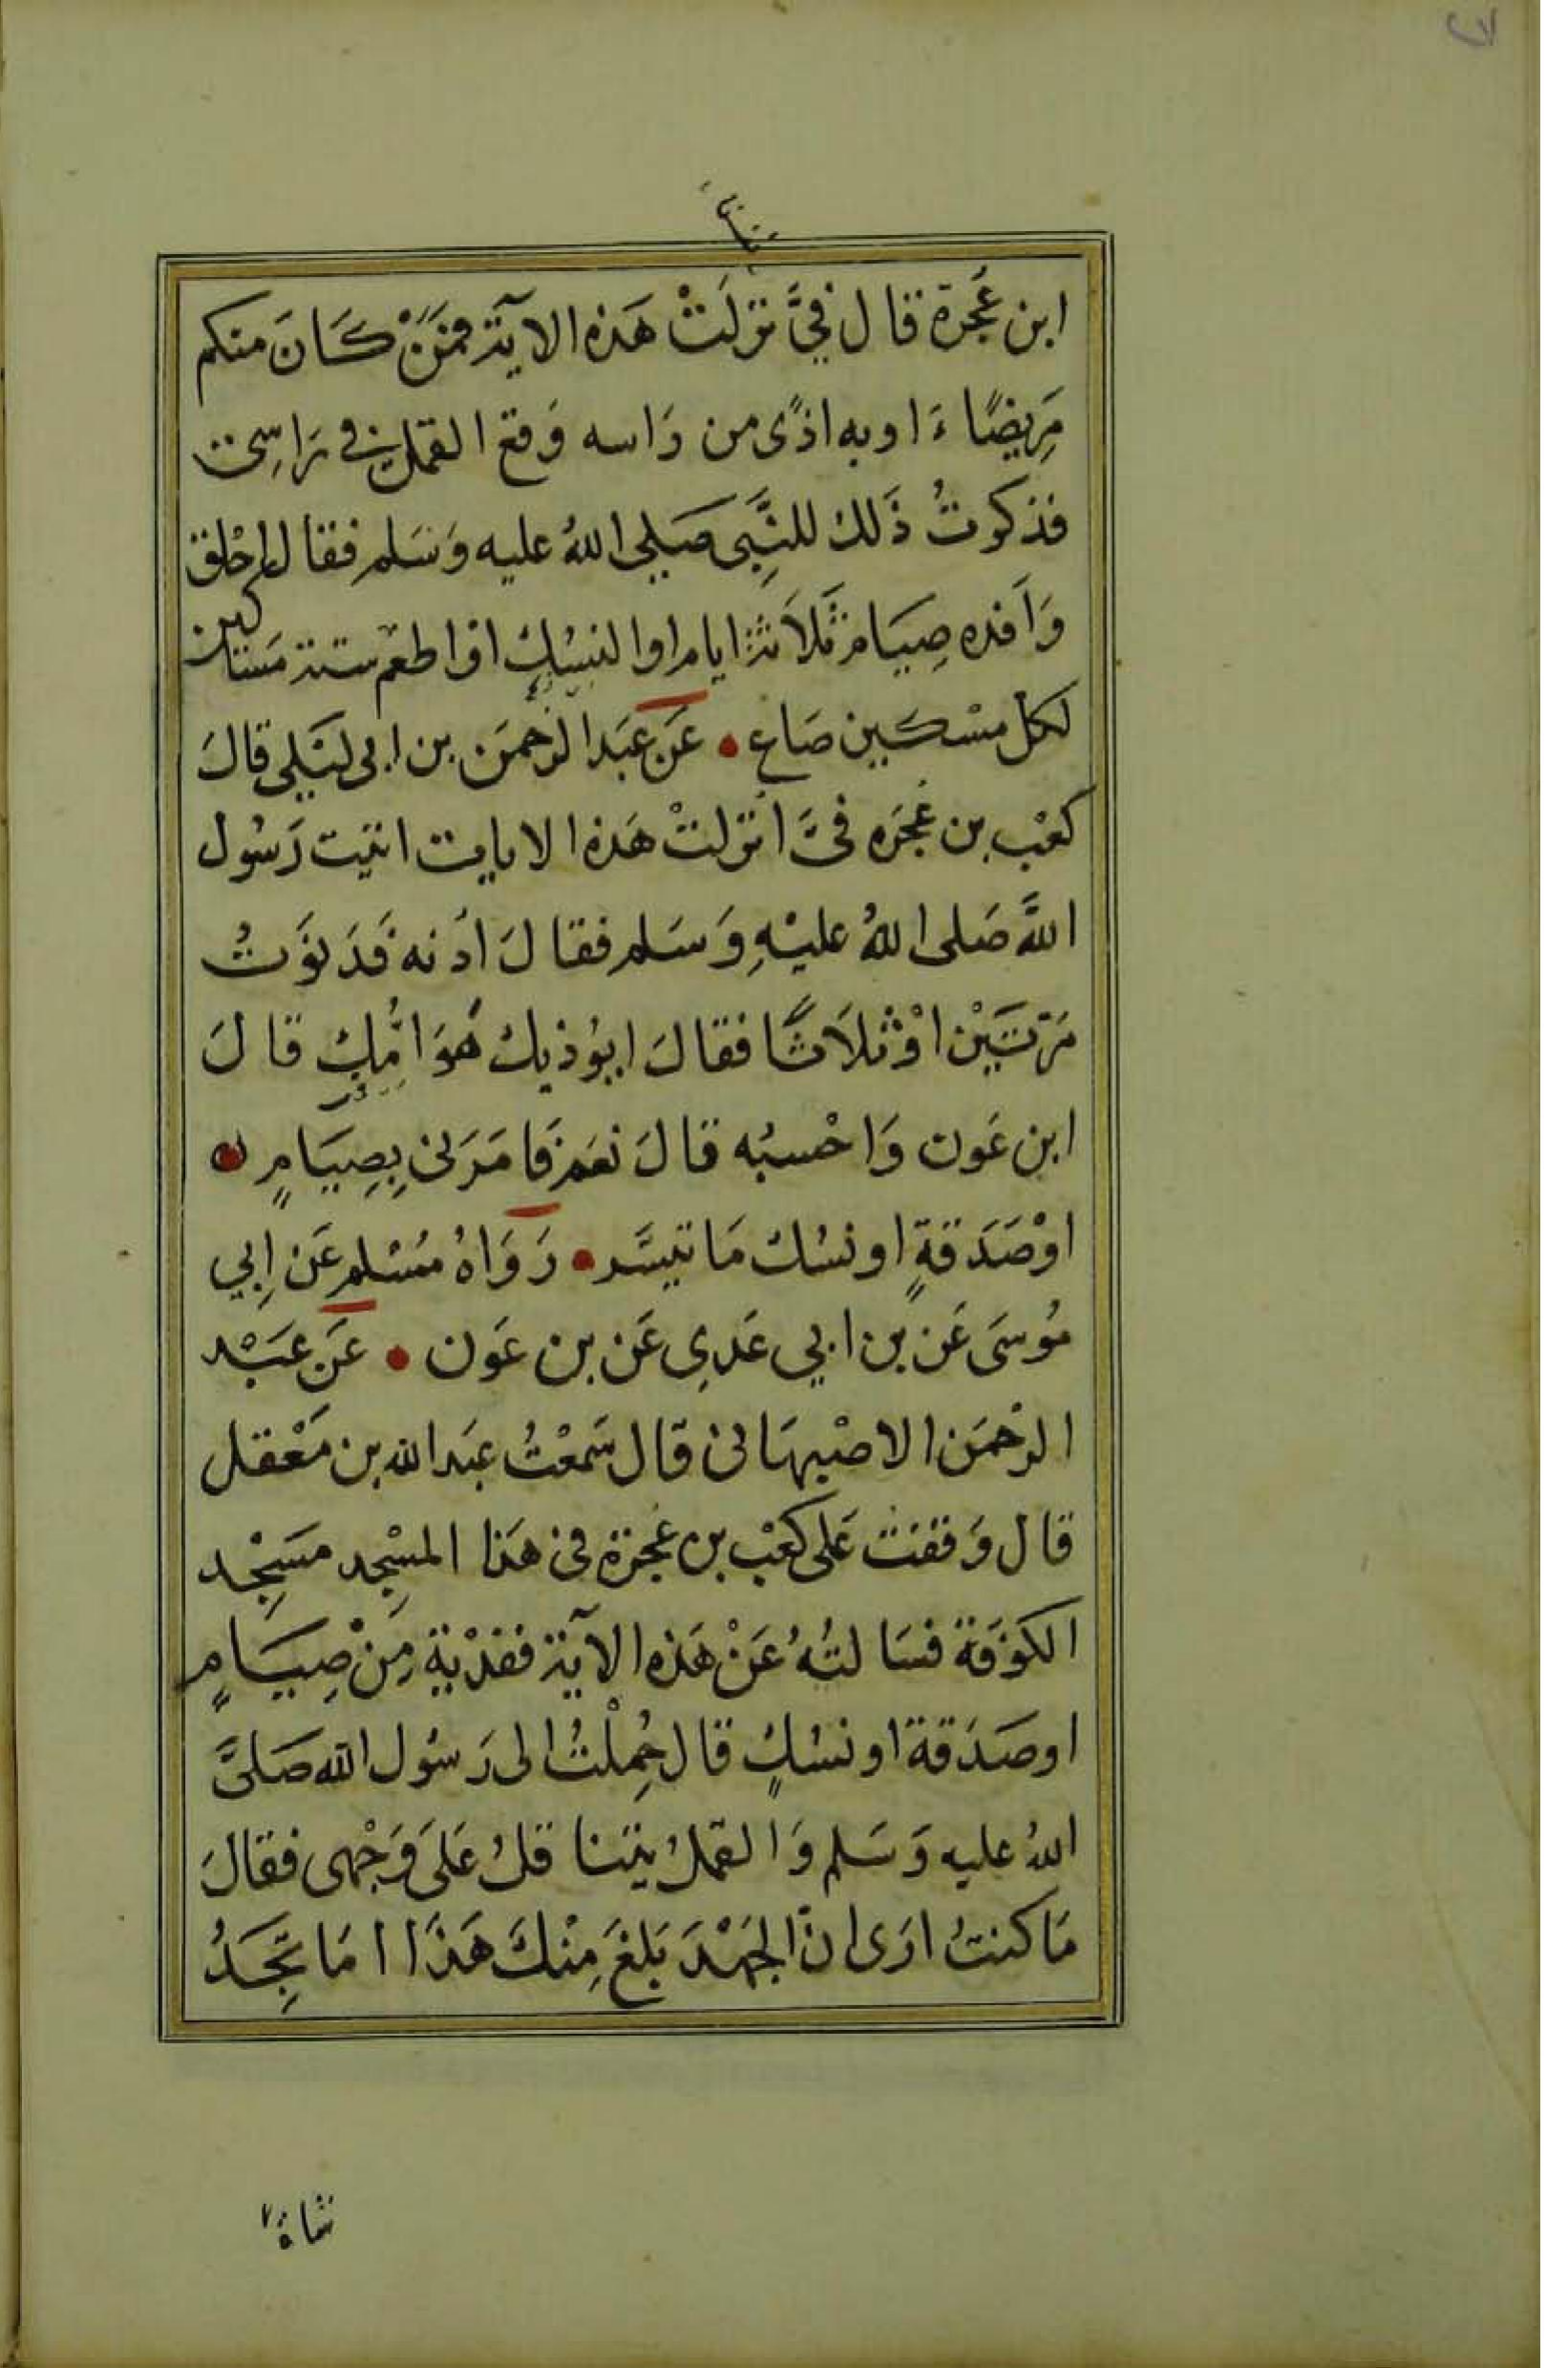 ابن عُجرة قال فيَّ نزلَتْ هَذه الآية فمَنْ كَانَ منكم
مَرِيضًا ءَ او به اذًى من رَاسه وَقع القمل في رَاسِى
فذكرتُ ذَلك للنَّبِى صَلى اللهُ عليه وَسَلم فقال احْلق
وَافده صِيَام ثَلَاثة ايام او النسُك او اطعم ستة مَسَاكين
لكل مسْكين صَاع • عَن عبَد الرحمَن بن ابى ليَلى قالَ
كعْب بن عُجرَه فىَّ انزلتْ هَذه الايات اتيت رَسُول
اللَّه صَلى اللهُ عليْهِ وَسَلم فقالَ ادْنه فَدَنوَتُ
مَرّتَيْن اوْ ثلَاثًا فقالَ ايوُذيك هَوَامُّك قالَ
ابن عَون وَاحْسبُه قالَ نعَم فَامَرَنى بِصِيَامٍ •
اوْ صَدَقةٍ او نسُك مَا تيسَّر • رَوَاهُ مُسْلم عَن ابِي
مُوسَى عَن بن ابي عَدِي عَن بن عَون • عَن عبَْد
الرحْمَن الاصْبهَانى قال سَمعْتُ عبَد الله بن مَعْقل
قال وَقفت عَلى كعْب بن عُجرَة فى هَذا المسْجِد مسَجِْد
الكوَفَة فسَالتُهُ عَنْ هَذه الآية ففدْيةٍ مِنْ صِيَامٍ
او صَدَقة او نسُكٍ قال حُمِلْتُ الى رَسُول الله صَلىَّ
اللهُ عليه وَسَلم وَالقملُ يتنا قلُ عَلىَ وَجْهى فقالَ
مَا كنتُ ارَى انّ الجَهْدَ بَلغَ مِنْكَ هَذَا امَا تجِدُ
شاة